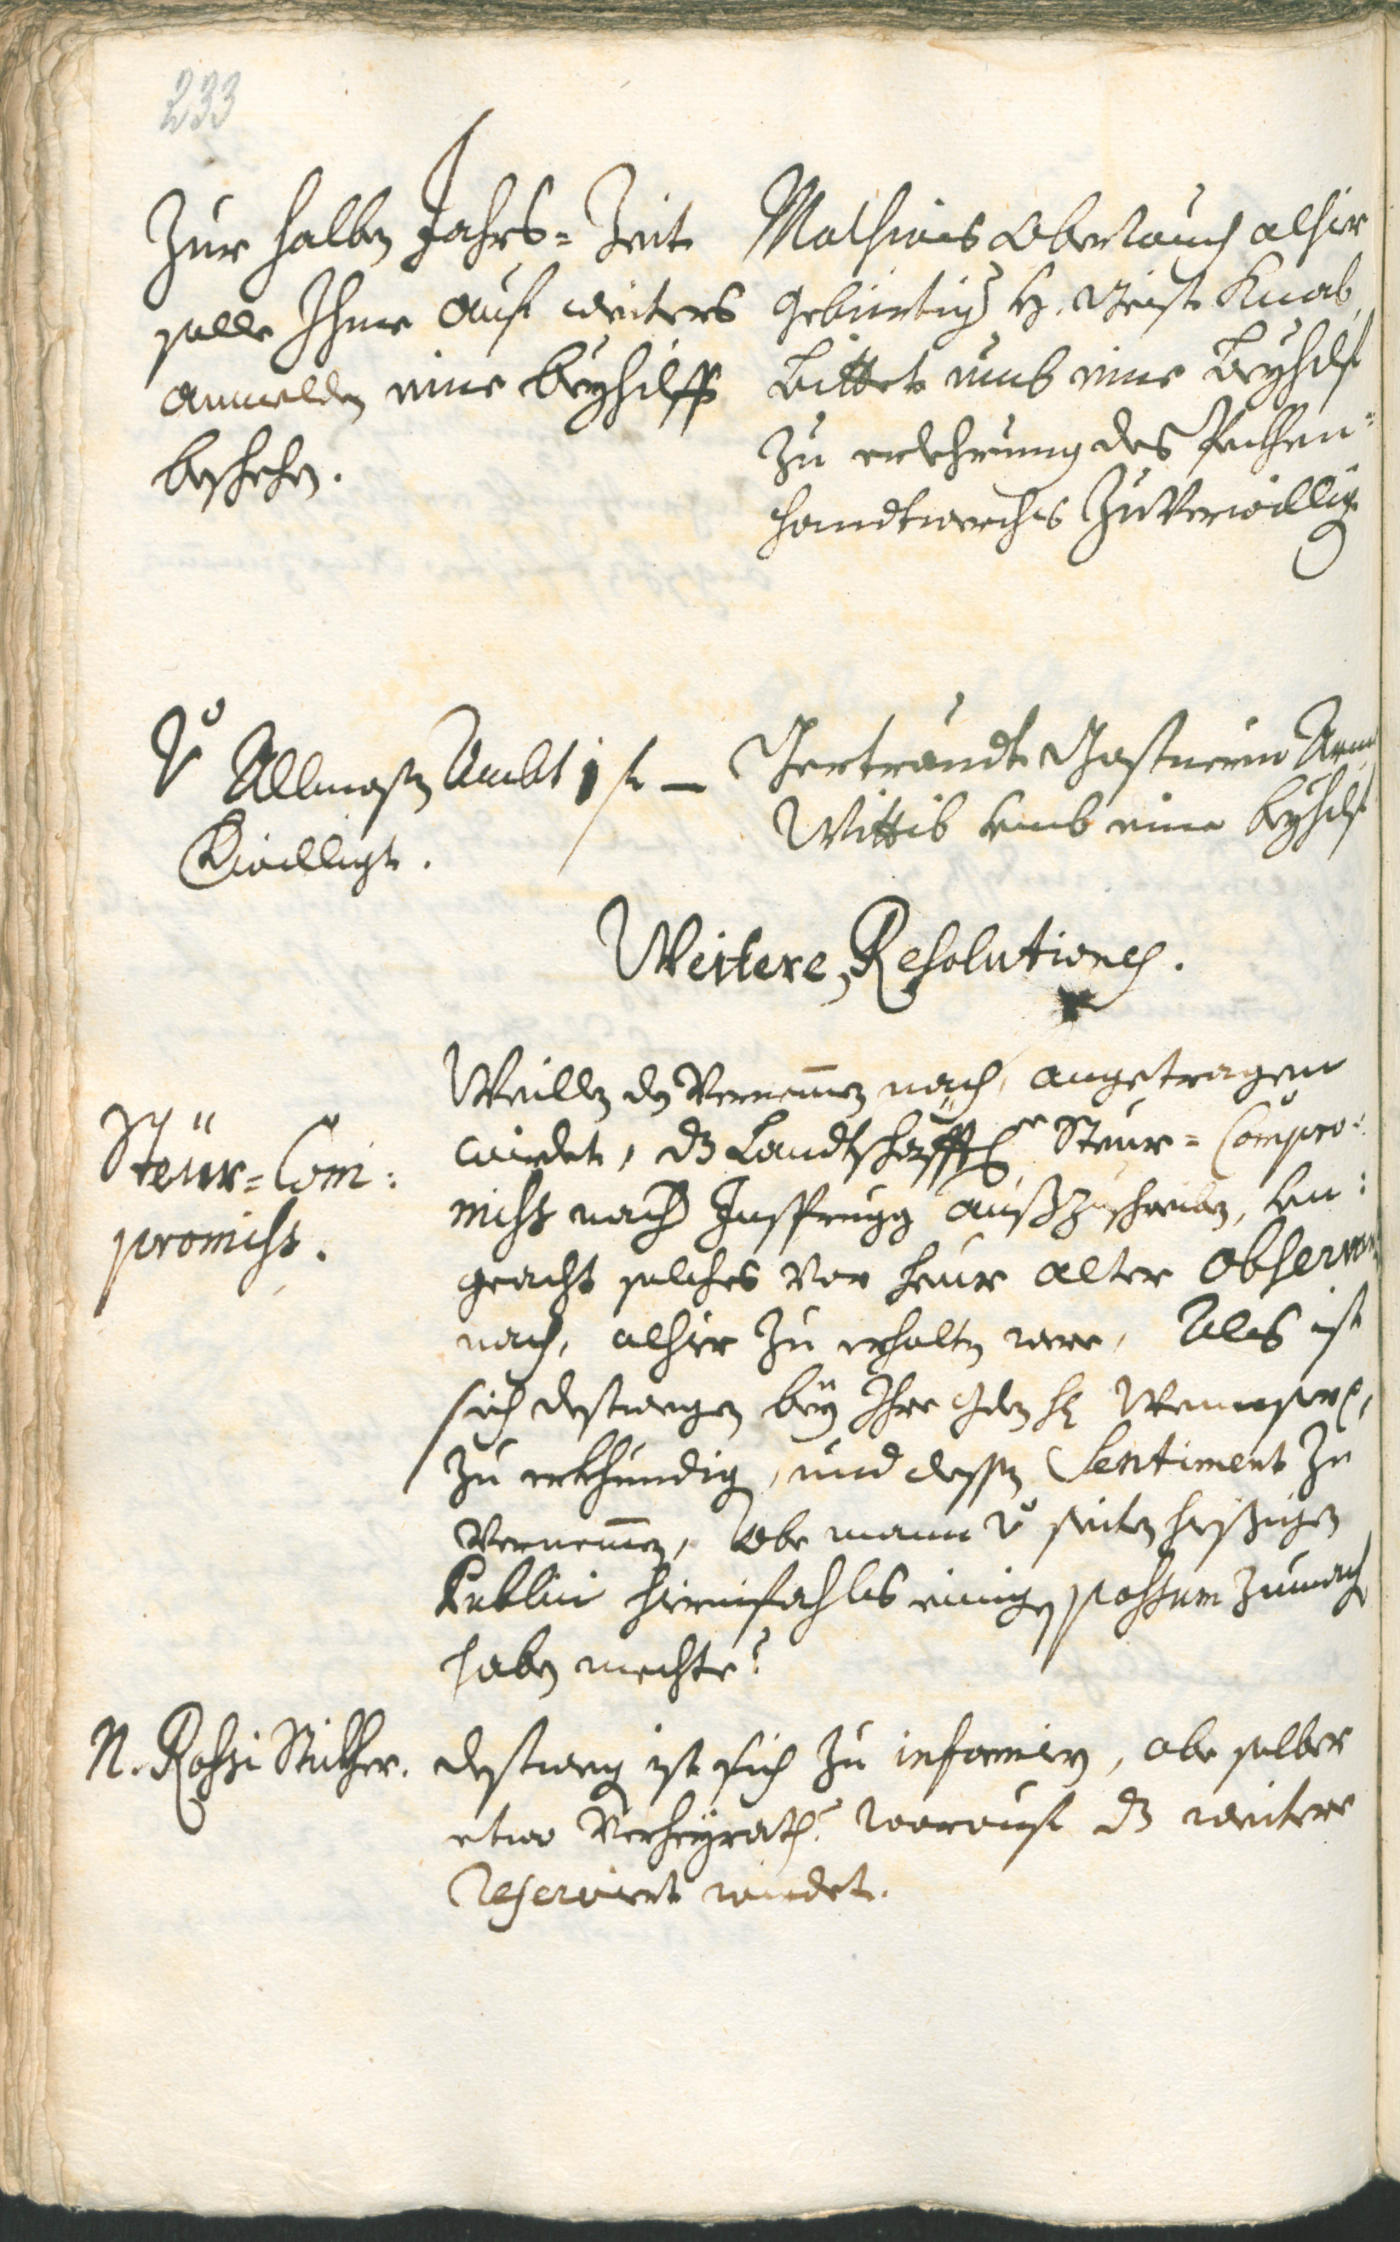 233
Zur halben Jahrs-Zeit
solle Ihme auf weiters
anmelden eine beyhilff
beschehen.
Mathias Oberlauch alhier
gebürtig H. Geist Knab
bittet umb eine beyhilf
zu erlehrnung des
handtwerchs zu verwillig
Vo Allmosen Ambt 1 f —
Bewilligt.
Gertraudt Gastnerin Arm
Wittib umb eine beyhilf
Weitere Resolutiones.
Steur-Com:
promiss.
Weillen dem Vernemen nach, angetragen
wirdet, dz Landtschafftl. Steur-Compro:
miss nach Insprugg außzuschreiben, un:
geacht solches vor heur alter observanz
nach, alhier zu erhalten were, Als ist
sich destwegen bey Ihro Gden H.
zu erkhundig, und dessen Sentiment zu
vernemen, Obe mann vo seiten hießigen
Publici hierinfahls einigen passum zumachen
haben mechte?
N. Rossi Maller.
destweg ist sich zu informiern, obe selber
etwo verheyrath? worauf dz weitere
reserviert wirdet.